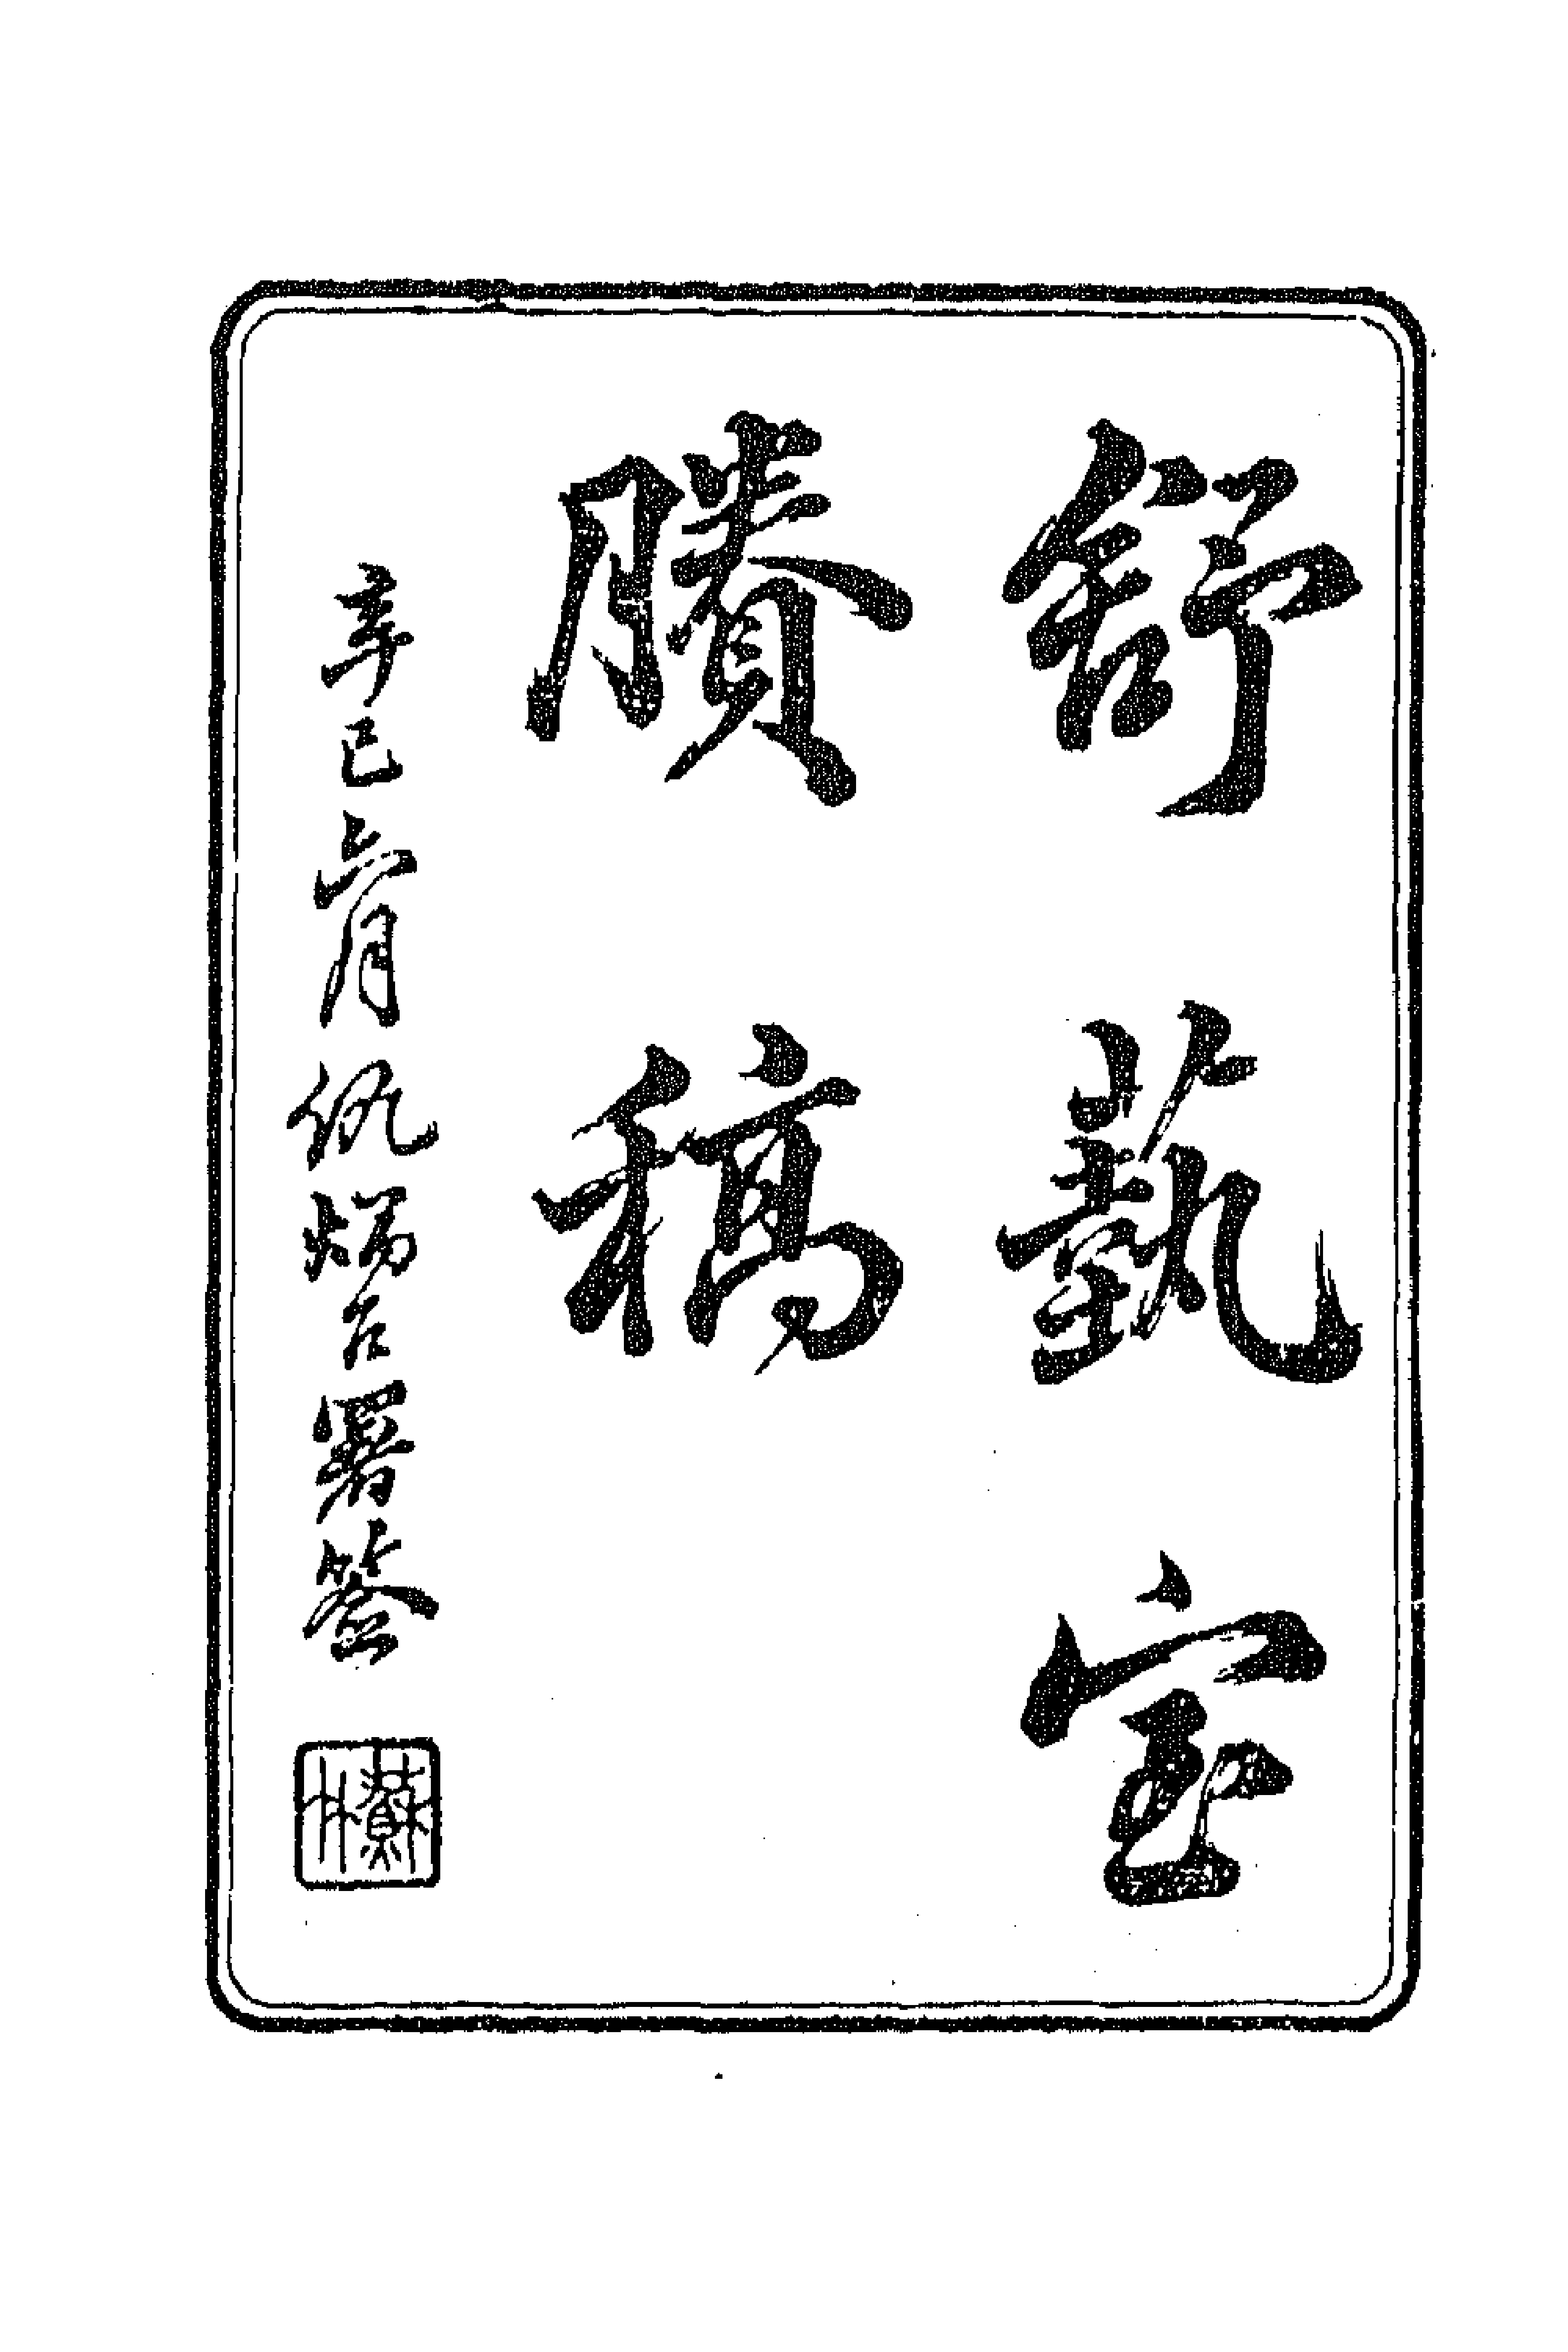 舒藝室
賸稿
辛巳六月仇炳台署簽